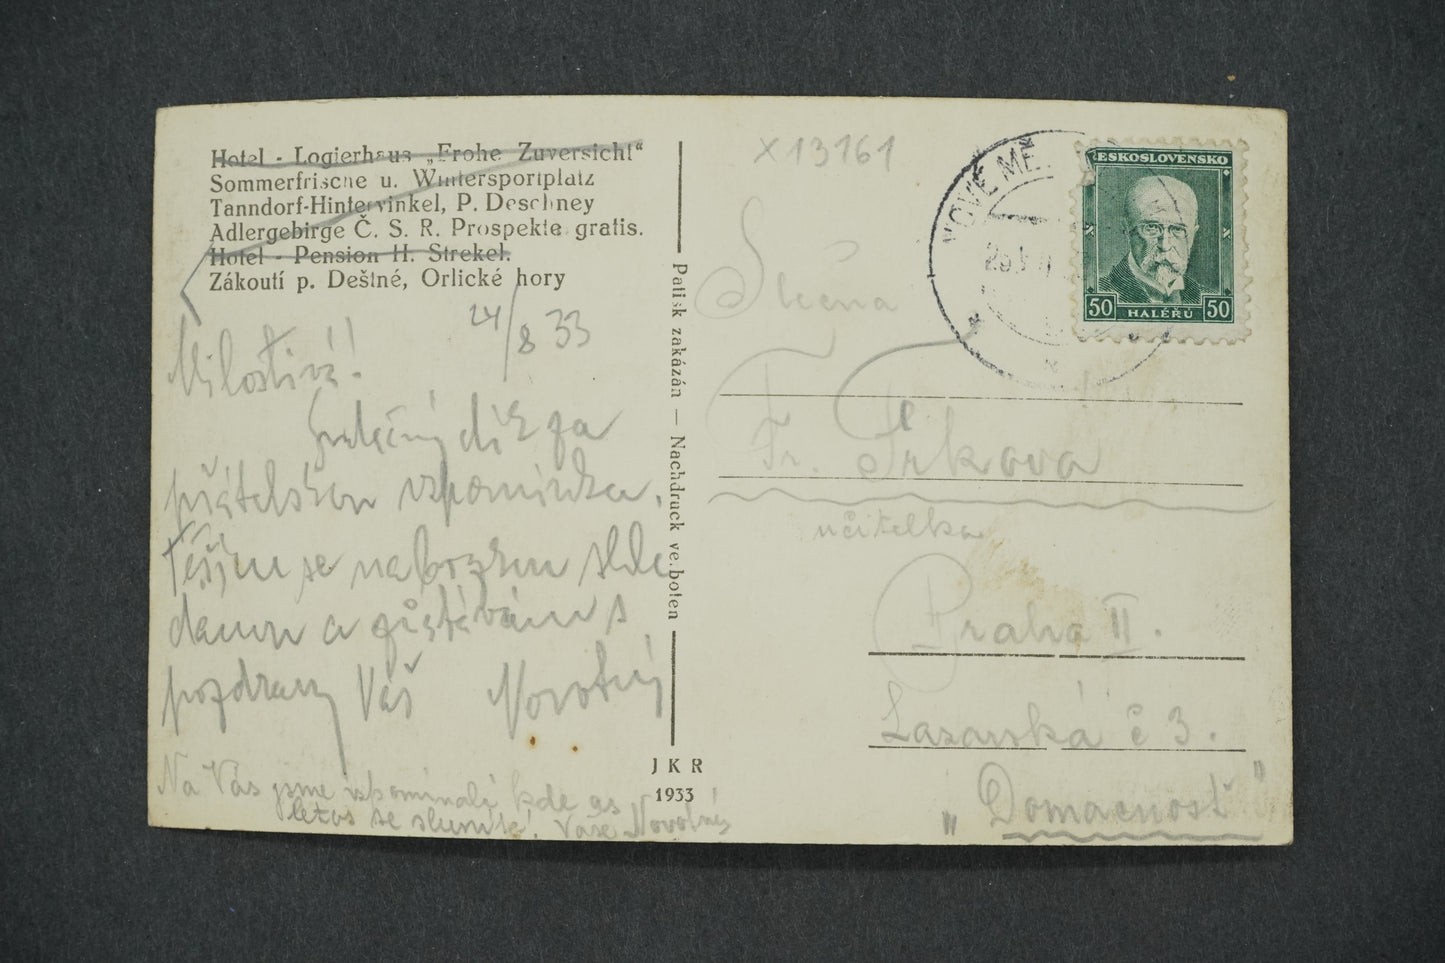 Hotel - Logierhaus „Frohe Zuversicht“
Sommerfrische u. Wintersportplatz
Tanndorf-Hinterwinkel, P. Deschney
Adlergebirge Č. S. R. Prospekte gratis.
Hotel - Pension H. Strekel.
Zákoutí p. Deštné, Orlické hory
24/8 33
Milostivá!
Srdečný dík za
přátelskou vzpomínku.
Těším se na brzkou shle
danou a zůstávám s
pozdravy Váš Novotný
Na Vás jsme vzpomínali kde as
letos se sluníte. Vaše Novotný
Patisk zakázán — Nachdruck verboten
J K R
1933
X13161
NOVÉ MĚ
ČESKOSLOVENSKO
50 HALÉŘŮ 50
Slečna
Fr. Trkova
učitelka
Praha II.
Lazarská č 3.
„Domacnost"